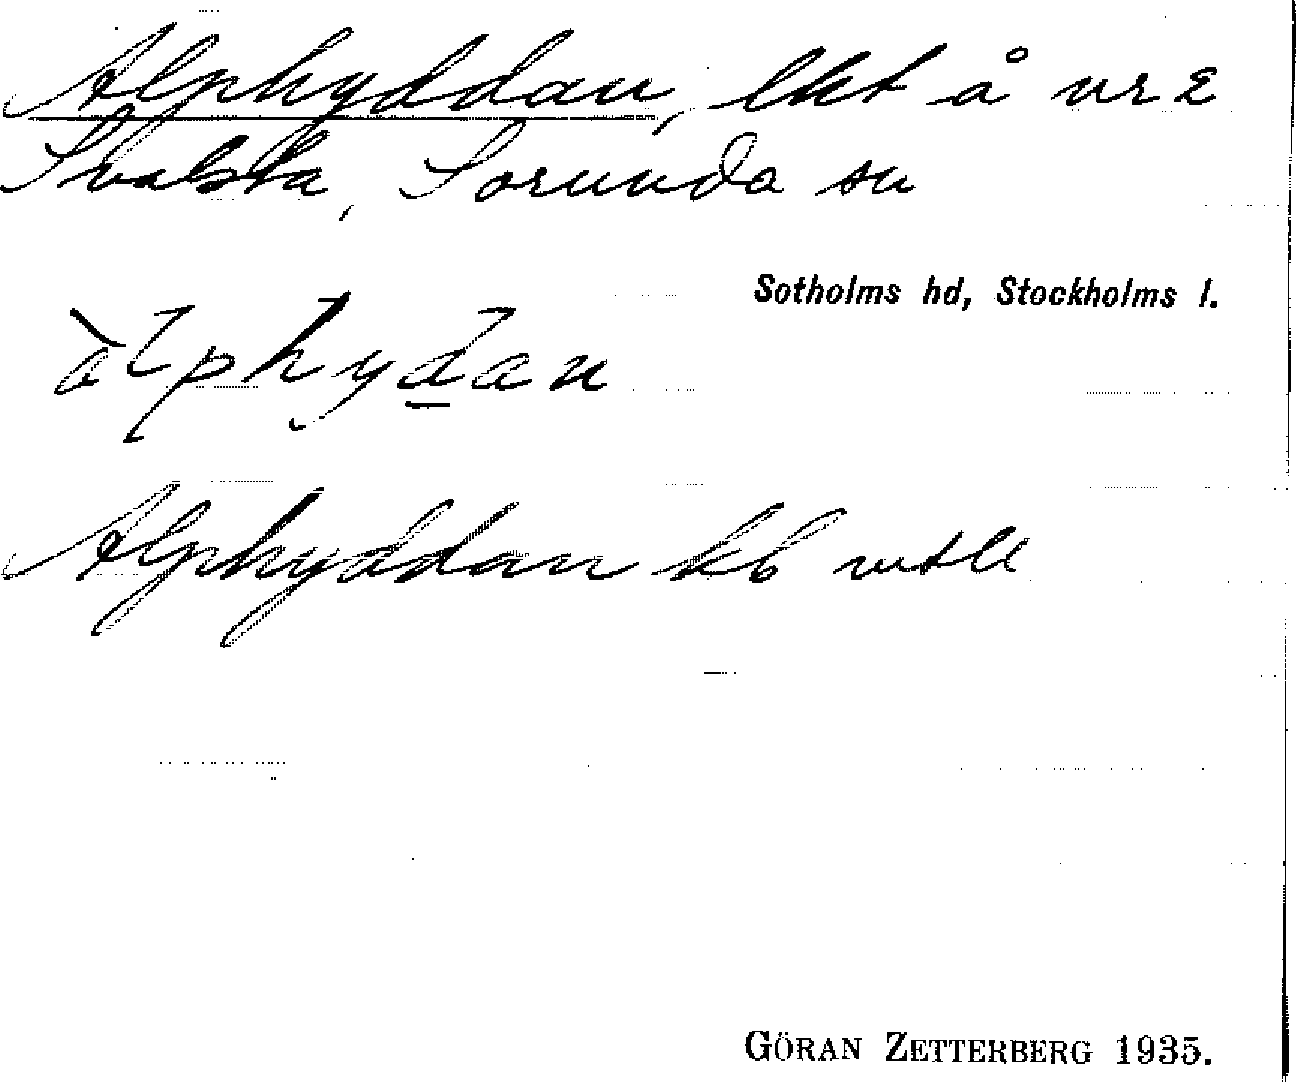 Alphyddan, lht å nr 2
Svalsta, Sorunda sn
Sotholms hd, Stockholms l.
àlphyd̲an
Alphyddan kb mtll
GÖRAN ZETTERBERG 1935.